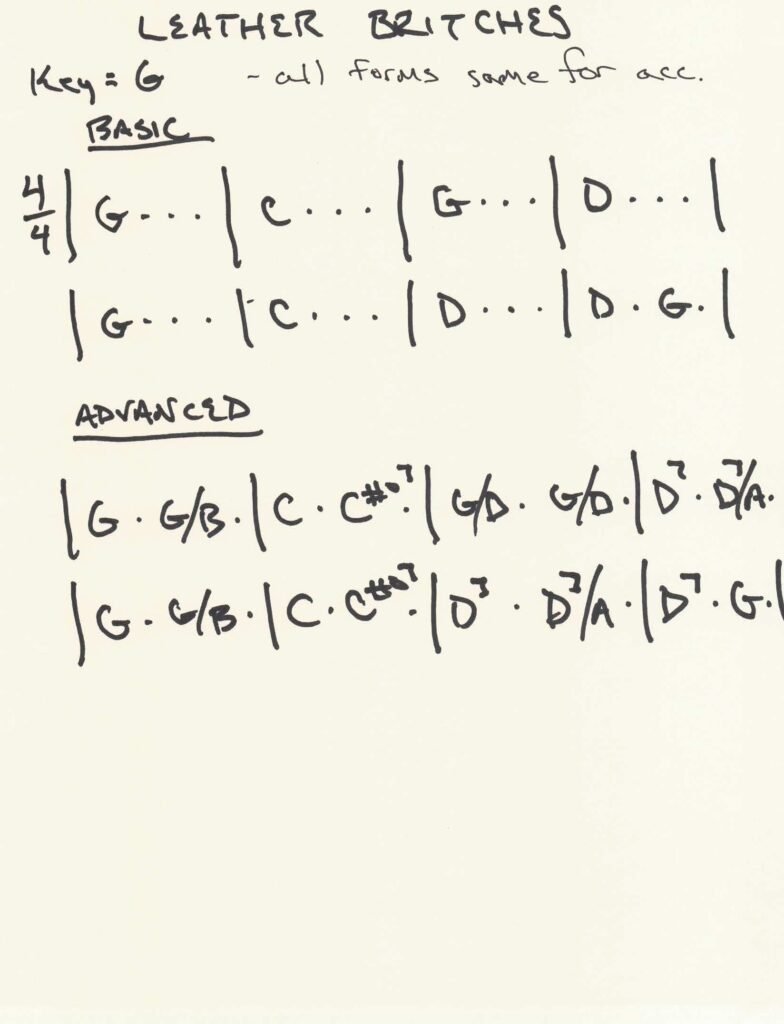 LEATHER BRITCHES
Key = G - all forms same for acc.
BASIC
4/4 | G . . . | C . . . | G . . . | D . . . |
| G . . . | C . . . | D . . . | D . G . |
ADVANCED
| G . G/B . | C . C#o7 . | G/D . G/D . | D7 . D7/A .
| G . G/B . | C . C#o7 . | D7 . D7/A . | D7 . G . |